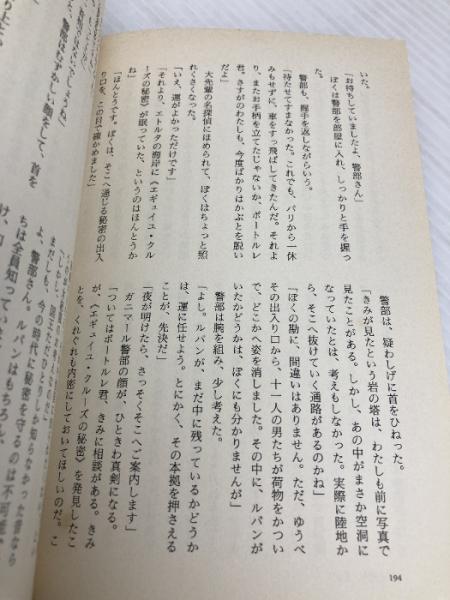 いた。
「お待ちしていましたよ、警部さん」
ぼくは警部を部屋に入れ、しっかりと手を握っ
た。
警部も、握手を返しながらいう。
「待たせてすまなかった。これでも、パリから一休
みもせずに、車をすっ飛ばしてきたんだ。それよ
り、またお手柄を立てたじゃないか、ボートルレ
君。さすがのわたしも、今度ばかりはかぶとを脱い
だよ」
大先輩の名探偵にほめられて、ぼくはちょっと照
れくさくなった。
「いえ、運がよかっただけです」
「それより、エトルタの海岸に《エギュイユ・クル
ーズの秘密》が眠っていた、というのはほんとうか
ね」
「ほんとうです。ぼくは、そこへ通じる秘密の出入
り口を、この目で確かめました」
警部は、疑わしげに首をひねった。
「きみが見たという岩の塔は、わたしも前に写真で
見たことがある。しかし、あの中がまさか空洞に
なっていたとは、考えもしなかった。実際に陸地か
ら、そこへ抜けていく通路があるのかね」
「ぼくの勘に、間違いはありません。ただ、ゆうべ
その出入り口から、十一人の男たちが荷物をかつい
で、どこかへ姿を消しました。その中に、ルパンが
いたかどうかは、ぼくにも分かりませんが」
警部は腕を組み、少し考えた。
「よし。ルパンが、まだ中に残っているかどうか
は、運に任せよう。とにかく、その本拠を押さえる
ことが、先決だ」
「夜が明けたら、さっそくそこへご案内します」
ガニマール警部の顔が、ひときわ真剣になる。
「ついてはボートルレ君、きみに相談がある。きみ
が《エギュイユ・クルーズの秘密》を発見したこ
とを、くれぐれも内密にしておいてほしいのだ。こ
194
警部はむずかしい顔をして、首を
よ、警部さん。ルパンはもちろん、
ちは全員知ってい
まだしも、今の時代に秘密を守るのは不可能